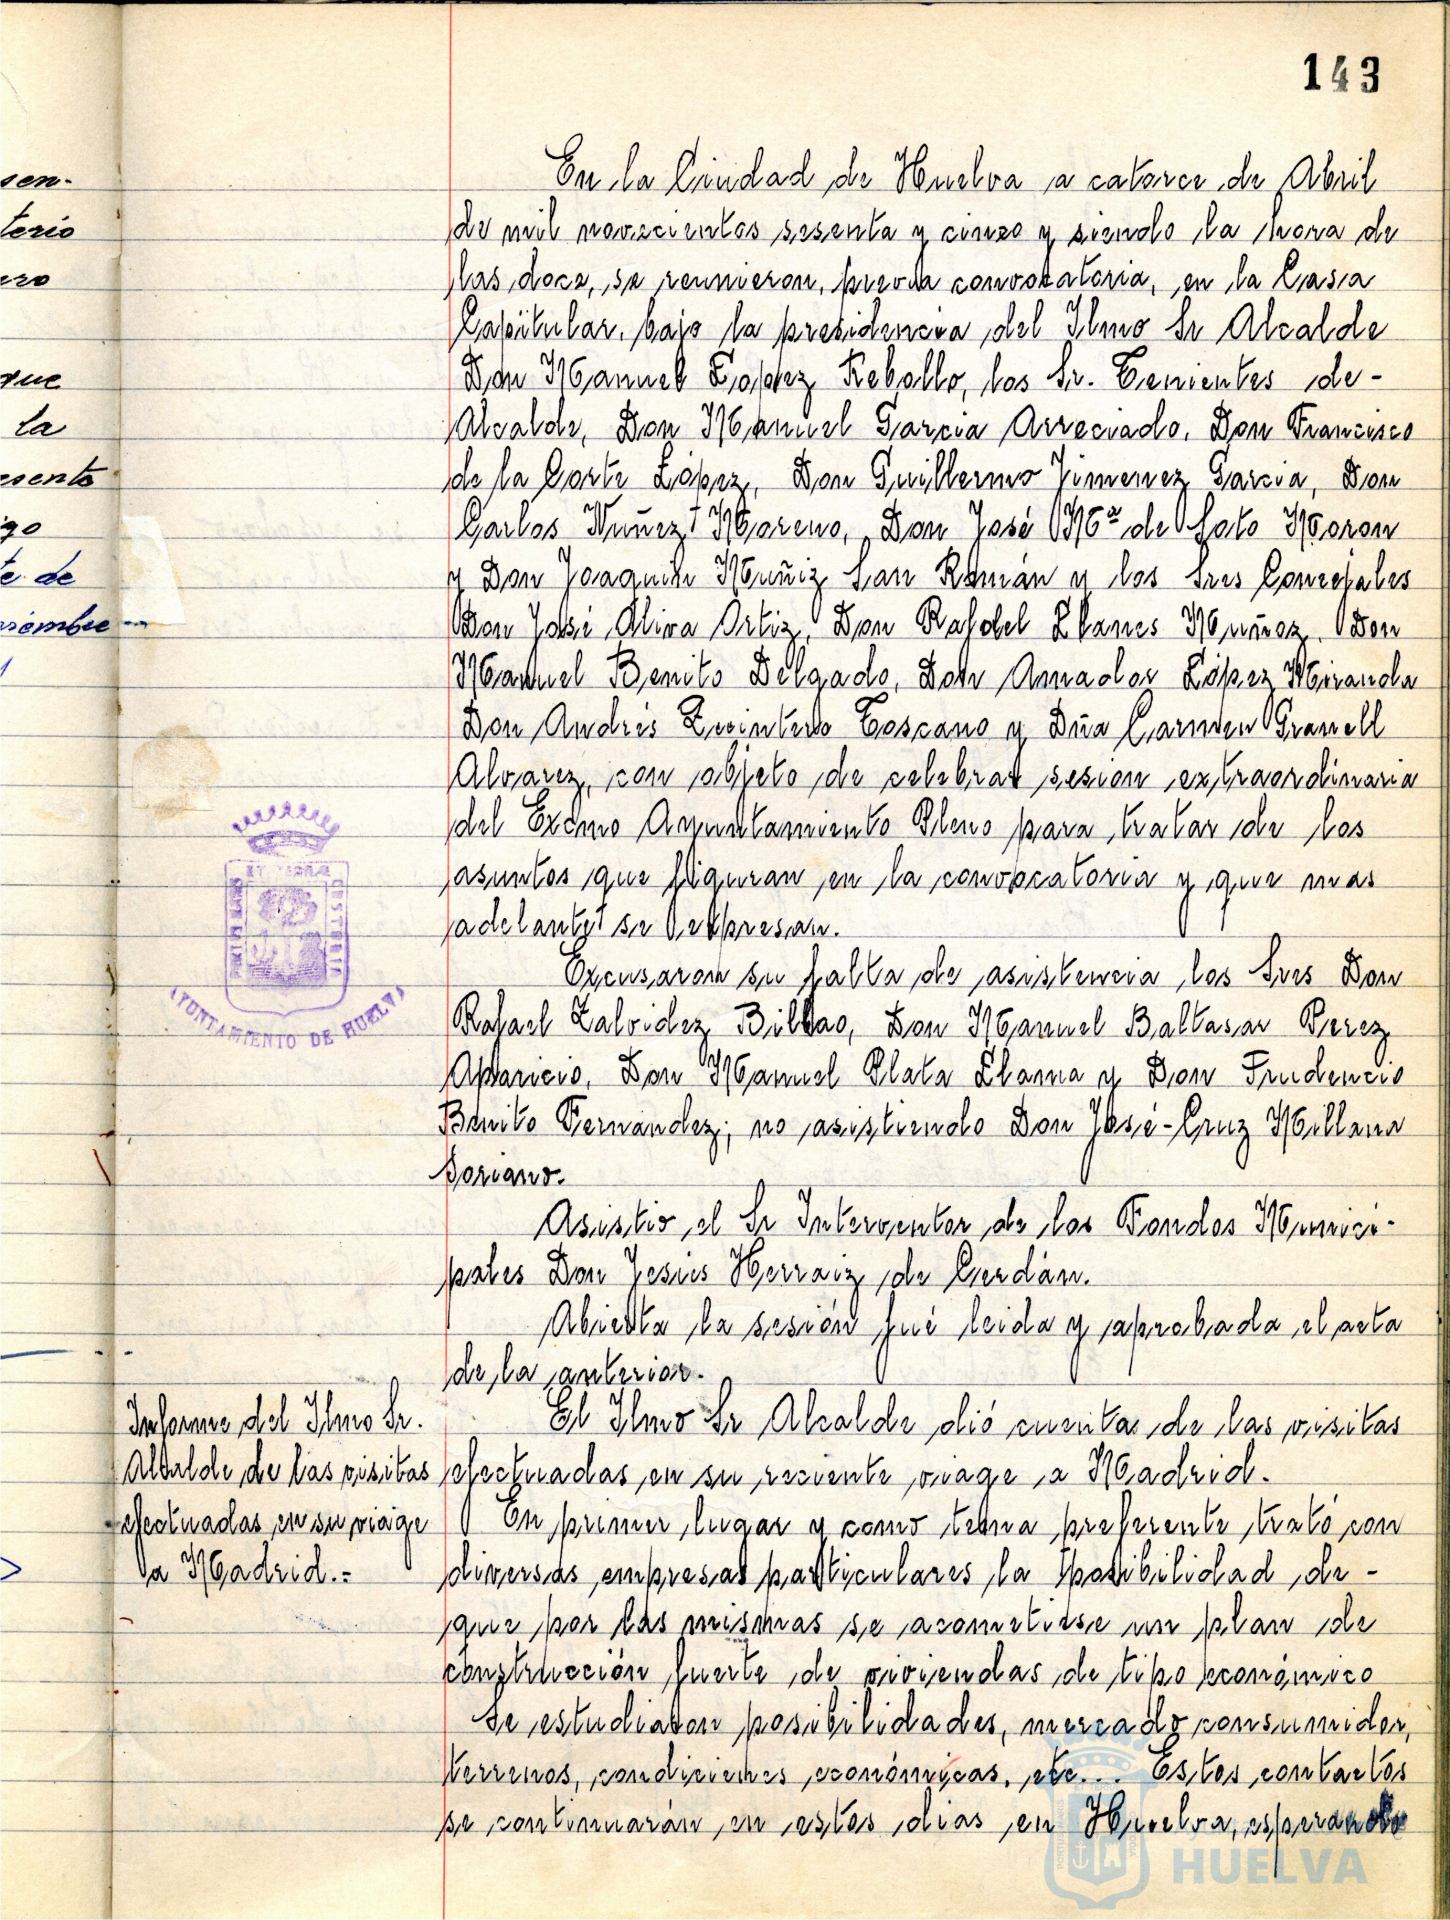 143
sen-
terio
ero
que
la
esento
go
te de
viembre
En la Ciudad de Huelva a catorce de Abril
de mil novecientos sesenta y cinco y siendo la hora de
las doce, se reunieron, previa convocatoria, en la Casa
Capitular, bajo la presidencia del Ilmo Sr Alcalde
Don Manuel Lopez Rebollo, los Sr. Tenientes de-
Alcalde, Don Manuel Garcia Arreciado, Don Francisco
de la Corte López, Don Guillermo Jimenez Garcia, Don
Carlos Nuñez Moreno, Don José Mª de Soto Moron
y Don Joaquin Muñiz San Román y los Sres Concejales
Don José Oliva Ortiz, Don Rafael Llanes Muñoz, Don
Manuel Benito Delgado, Don Amador López Miranda
Don Andrés Quintero Toscano y Dña Carmen Granell
Alvarez, con objeto de celebrar sesion extraordinaria
del Excmo Ayuntamiento Pleno para tratar de los
asuntos que figuran en la convocatoria y que mas
adelante se expresan.
Excusaron su falta de asistencia los Sres Don
Rafael Zalvidez Bilbao, Don Manuel Baltasar Perez
Aparicio, Don Manuel Plata Llama y Don Prudencio
Benito Fernandez; no asistiendo Don José-Cruz Millana
Soriano.
Asistio el Sr Interventor de los Fondos Munici-
pales Don Jesús Herraiz de Cerdán.
Abierta la sesión fué leida y aprobada el acta
de la anterior.
Informe del Ilmo Sr.
Alcalde de las visitas
efectuadas en su viage
a Madrid.-
El Ilmo Sr Alcalde dió cuenta de las visitas
efectuadas en su reciente viage a Madrid.
En primer lugar y como tema preferente trató con
diversas empresas particulares la posibilidad de-
que por las mismas se acometiese un plan de
construcción fuerte de viviendas de tipo económico
Se estudiaron posibilidades, mercado consumidor,
terrenos, condiciones económicas, etc... Estos contactos
se continuarán en estos dias en Huelva, esperando
AYUNTAMIENTO DE HUELVA
HUELVA